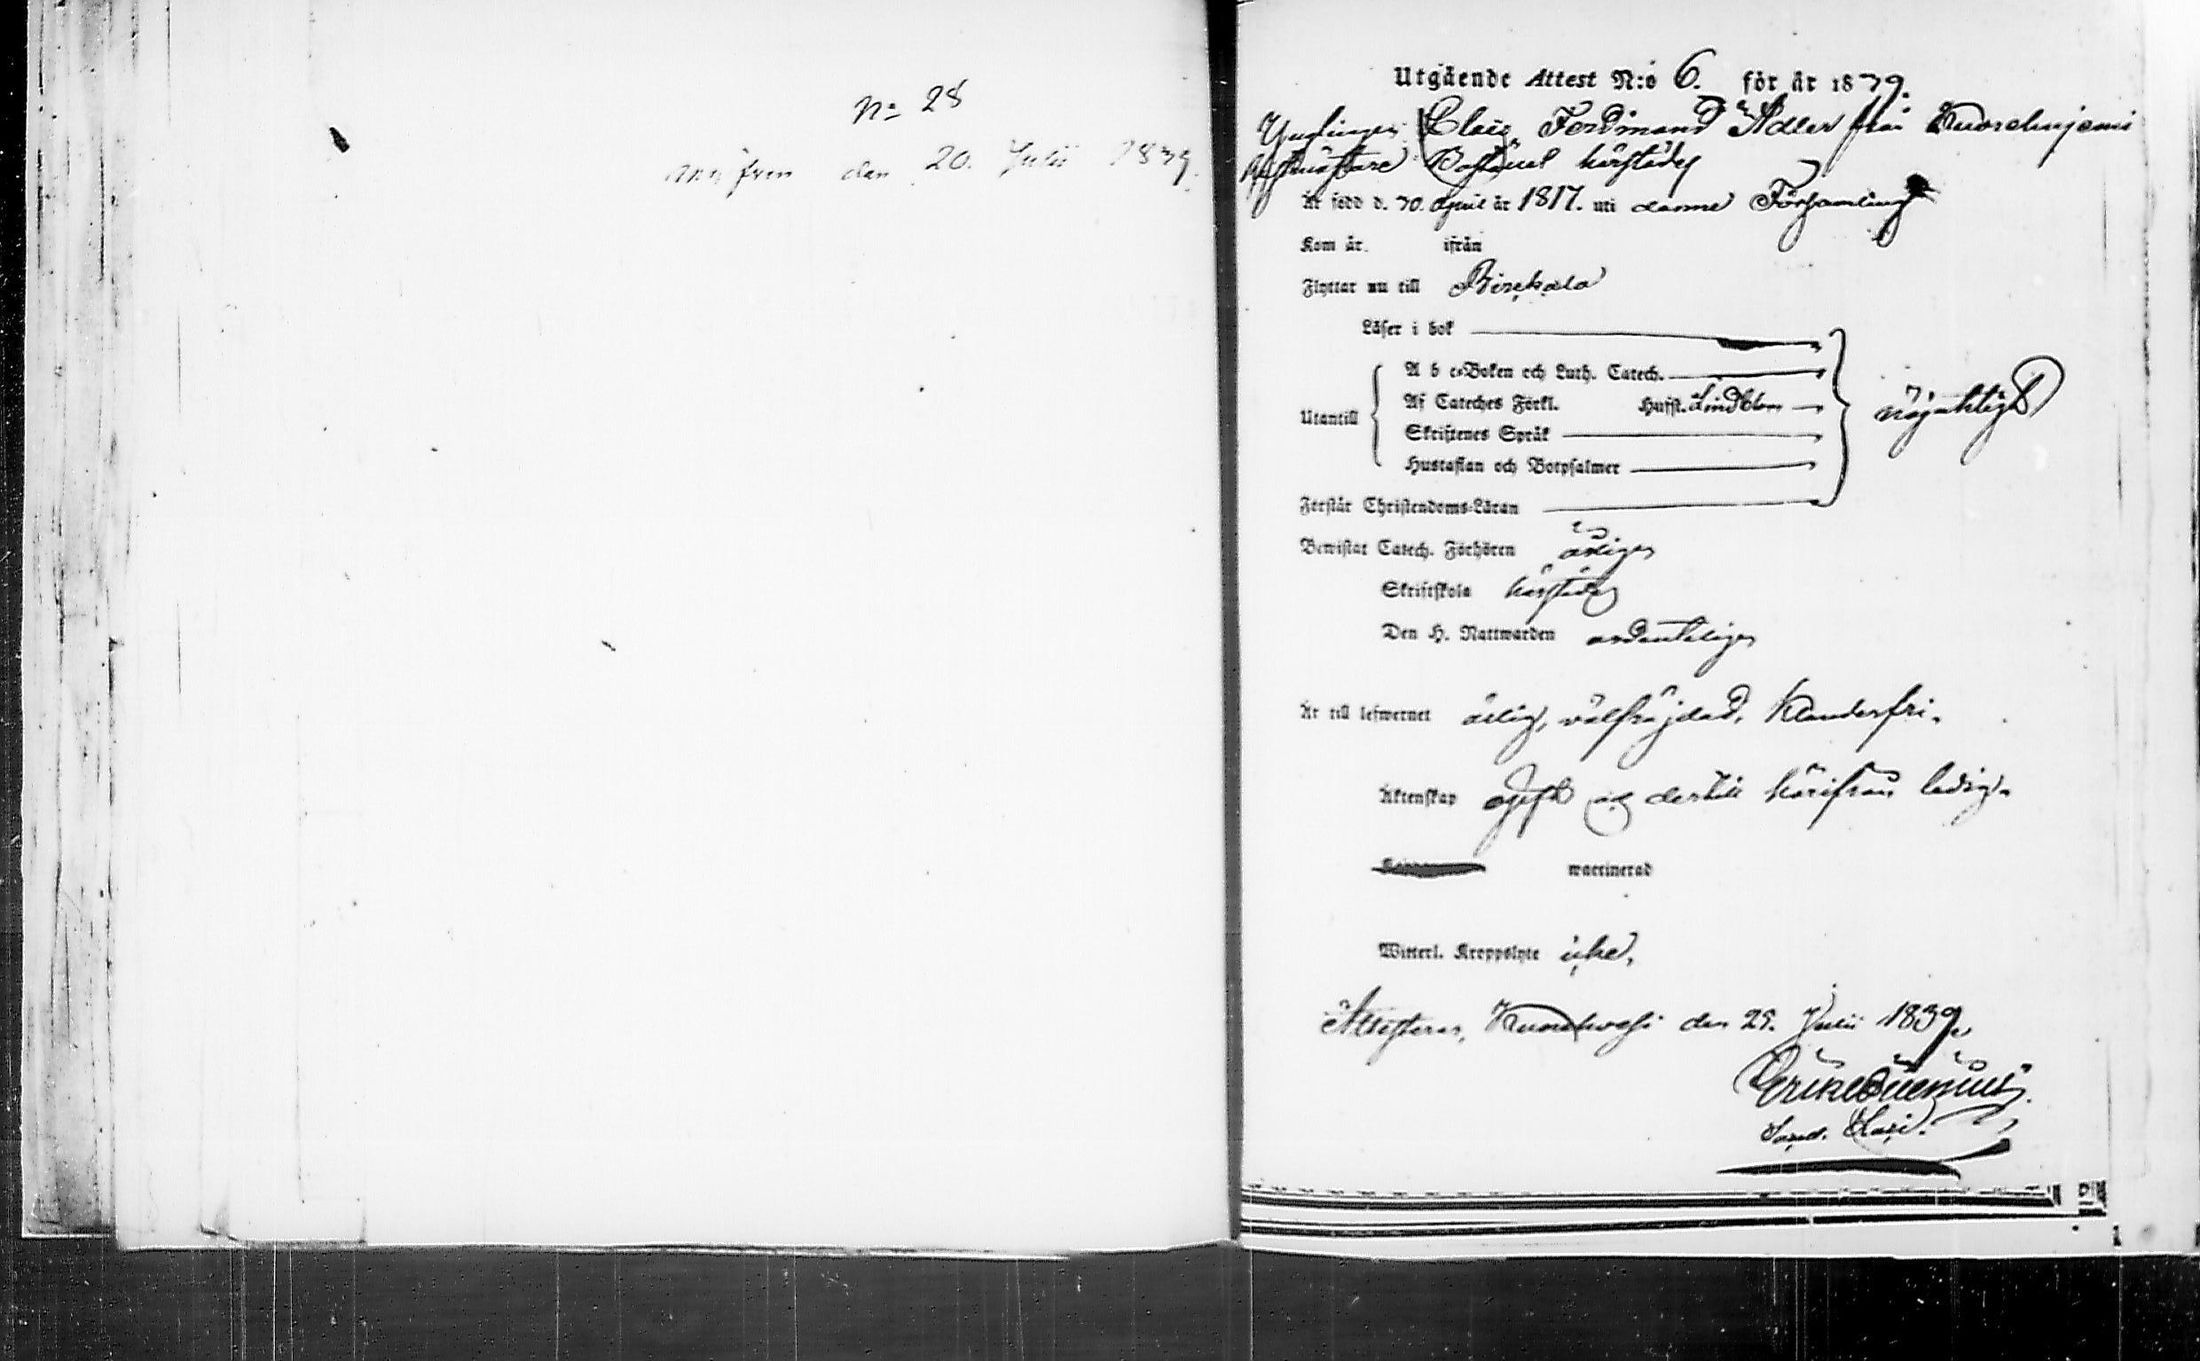 No 28
den 20. Julii 1839.
Utgående Attest N:o 6. för år 1839.
Ynglingen Claes Ferdinand Adler från
Boställ härstädes
Är född d. 30. April år 1817. uti denna Församling
Kom år ifrån
Flyttar nu till Birckala
Läser i bok
A b c-Boken och Luth. Catech.
Af Cateches Förkl. Hufst. Lindblom
Utantill
Skriftenes Språk
nöjaktigt
Hustaflan och Botpsalmer
Förstår Christendoms-Läran
Bewistat Catech. Förhören årligen
Skriftskola härstädes
Den H. Nattwarden ordenteligen
Är till lefwernet ärlig, välfräjdad, klanderfri.
Äktenskap ogift och dertill härifrån ledig.
waccinerad
Witterl. Kroppslyte icke.
Attesteras, den 29. Julii 1839.